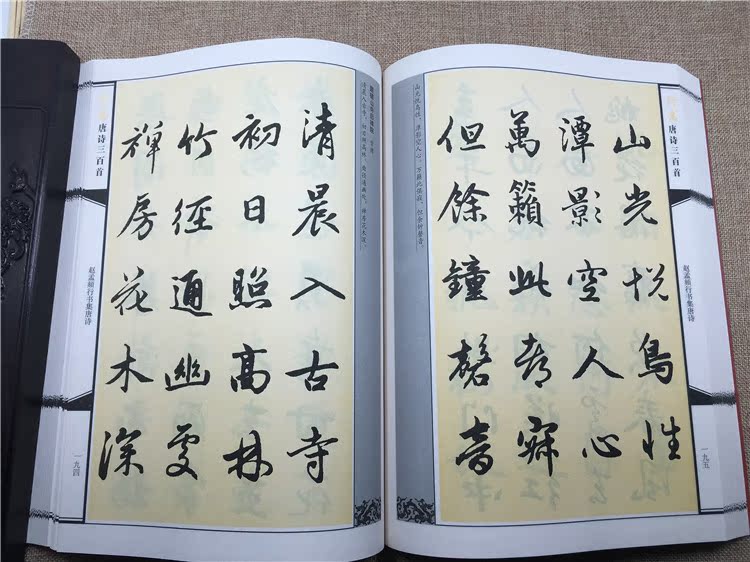 唐诗三百首
赵孟頫行书集唐诗
一九四
题破山寺后禅院 常建
清晨入古寺，初日照高林。竹径通幽处，禅房花木深。
清晨入古寺
初日照高林
竹徑通幽處
禪房花木深
山光悦鸟性，潭影空人心。万籁此都寂，但余钟磬音。
山光悦鳥性
潭影空人心
萬籟此都寂
但餘鐘磬音
唐诗三百首
赵孟頫行书集唐诗
一九五